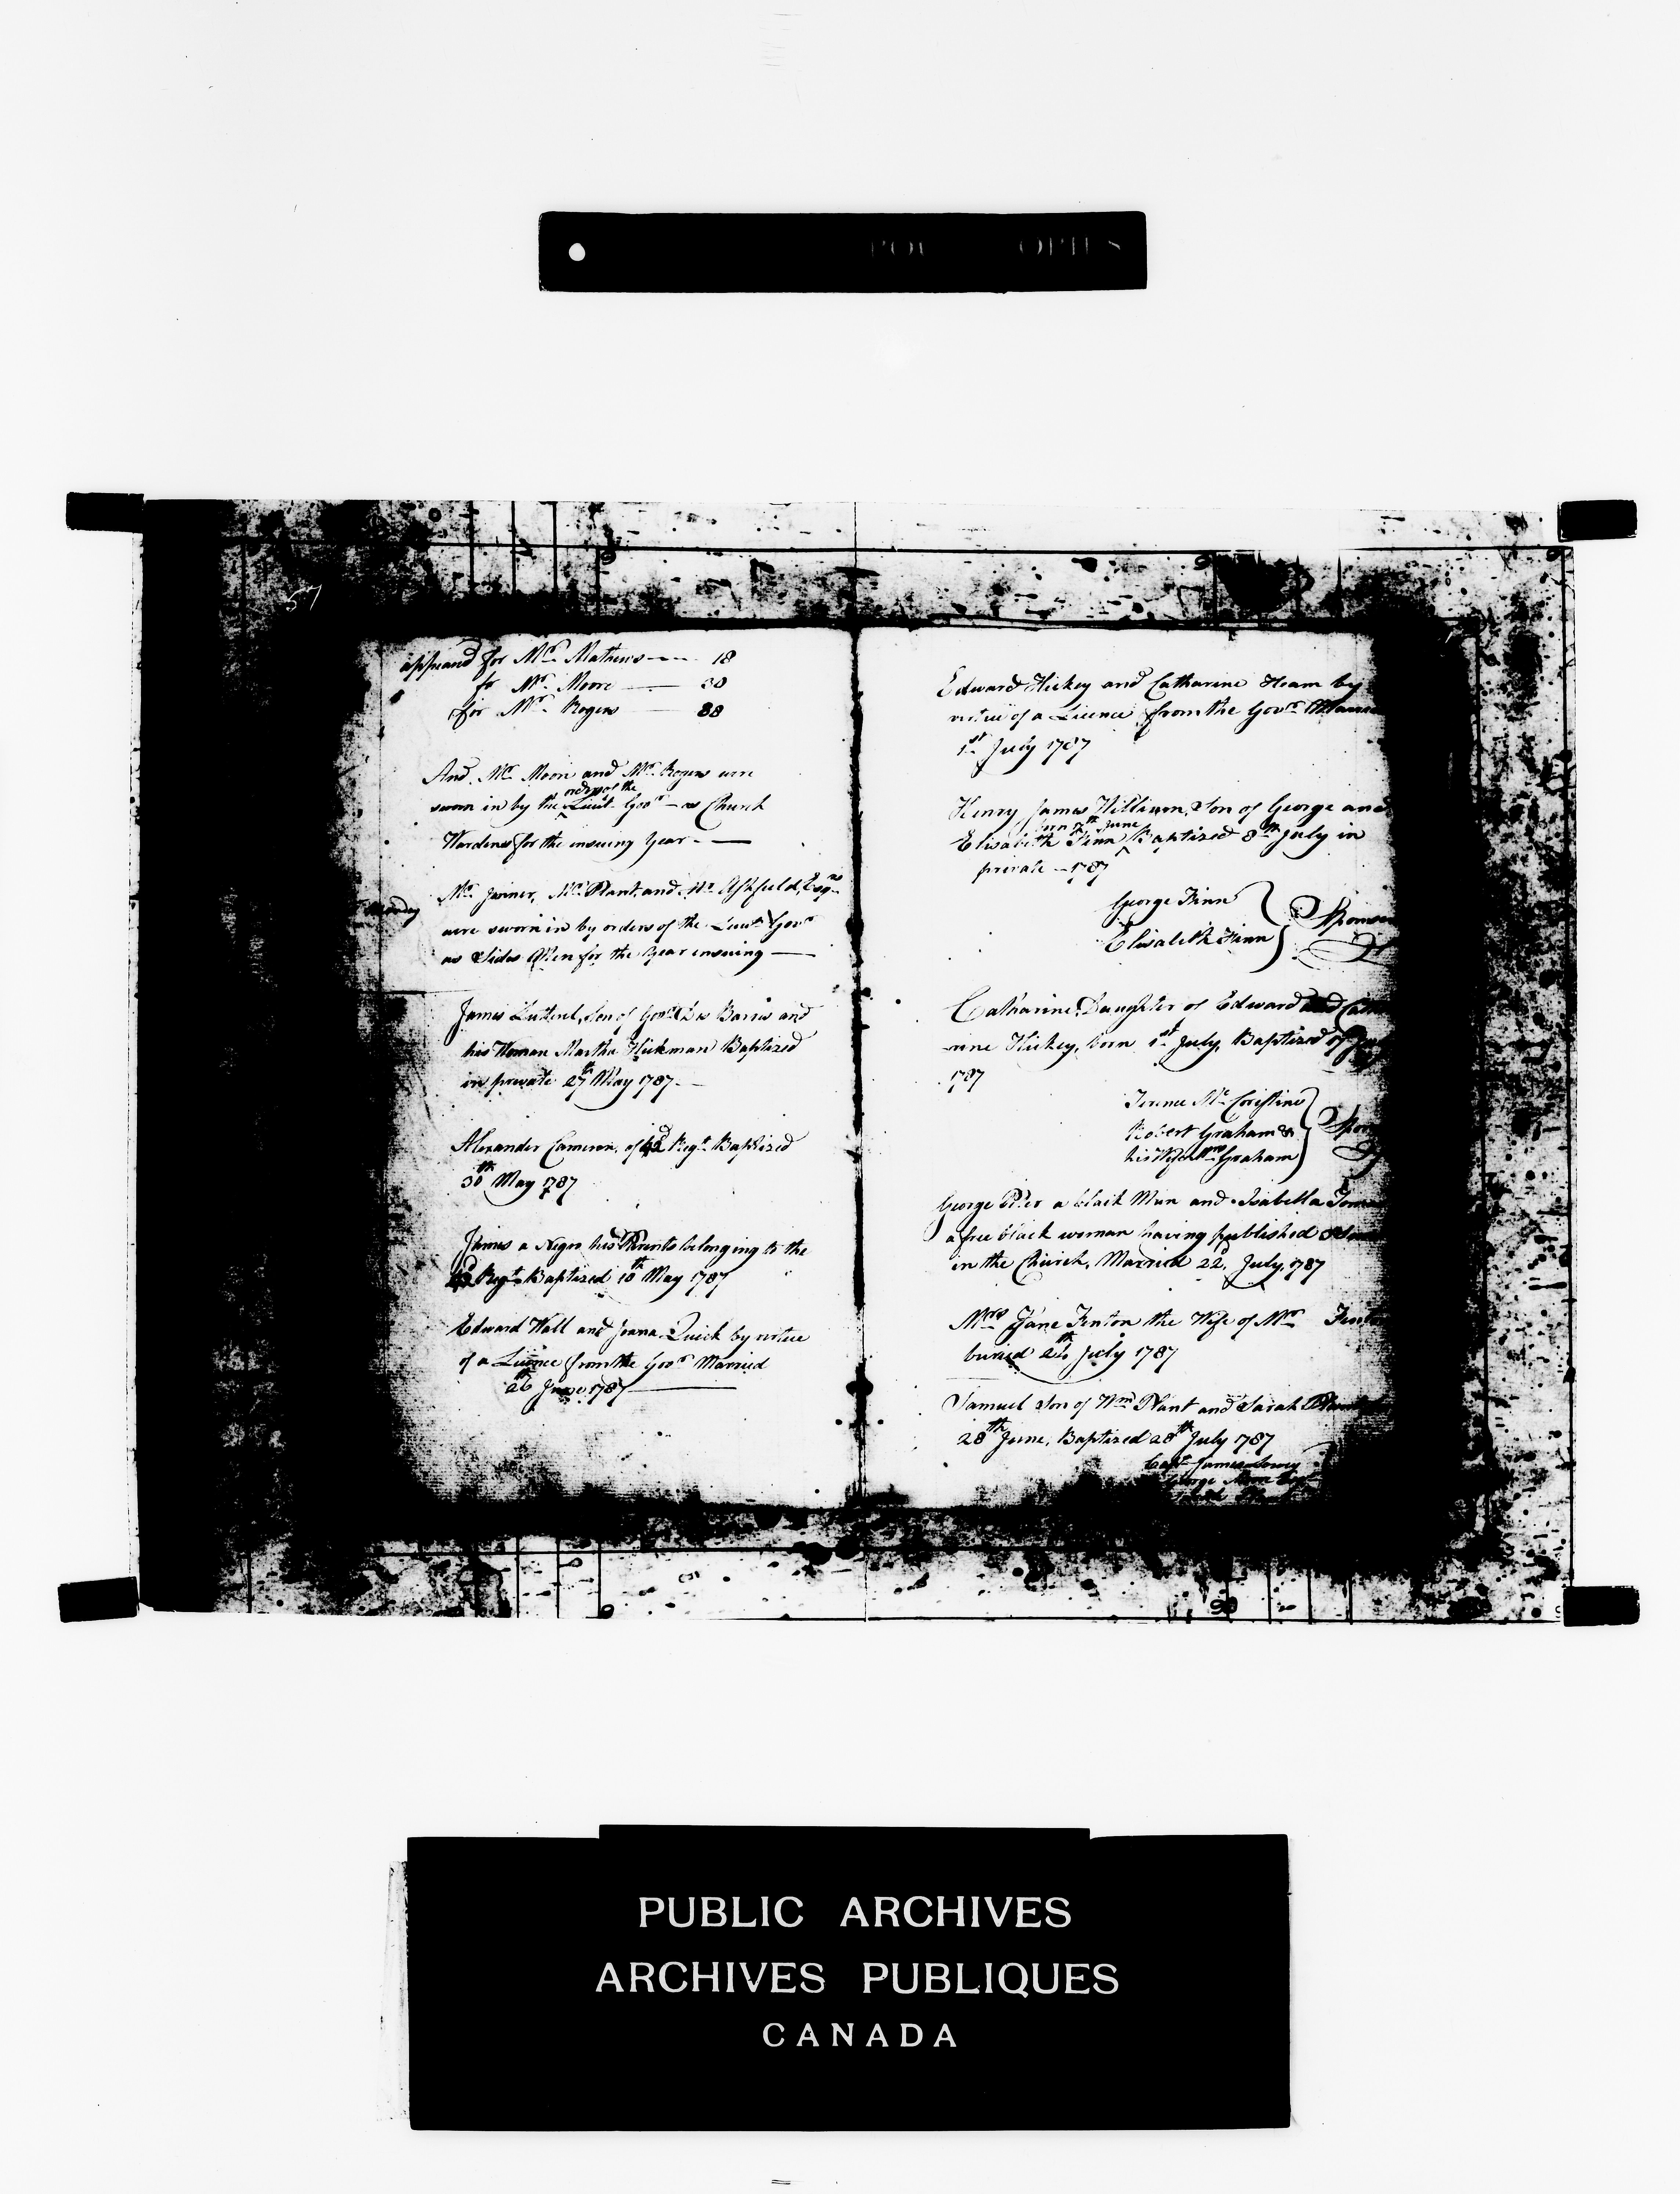 57
appeared for Mr. Mathews — 18
for Mr. Moore — 30
for Mr. Rogers — 38
And Mr. Moore and Mr. Rogers were
orders of the
sworn in by the Lieut. Govr. — as Church
Wardens for the insuing Year. —
Mr. Joiner, Mr. Plant, and Mr. Ashfield, Esqrs.
were sworn in by orders of the Lieut. Govr
as Sides Men for the Year ensuing —
James Luttrel, Son of Govr. Des Barres and
his Woman Martha Hickman Baptized
in private 27th May 1787 —
Alexander Cameron, of 42d Regt. Baptized
30th May 1787
James a Negro his Parents belonging to the
42d Regt. Baptized 10th May 1787
Edward Wall and Joana Quick by virtue
of a Licence from the Govr. Married
26th June 1787
Edward Hickey and Catharine Ham by
virtue of a Licence from the Govr.
1st July 1787
Henry James William, Son of George and
born 7th June
Elisabeth Finn Baptized 8th July in
private — 1787
George Finn
Elisabeth Finn
Catharine Daughter of Edward and
rine Hickey, born 1st July, Baptized
1787
Terence Mc
Robert Graham &
his Wife Mrs Graham
George a black Man and Isabella
a free black woman having published
in the Church, Married 22d. July, 1787
Mrs Jane Fenton the Wife of Mr
buried 26th July 1787
Samuel Son of Wm Plant and Sarah
28th June, Baptized 28th July 1787
Capt James
George
PUBLIC ARCHIVES
ARCHIVES PUBLIQUES
CANADA